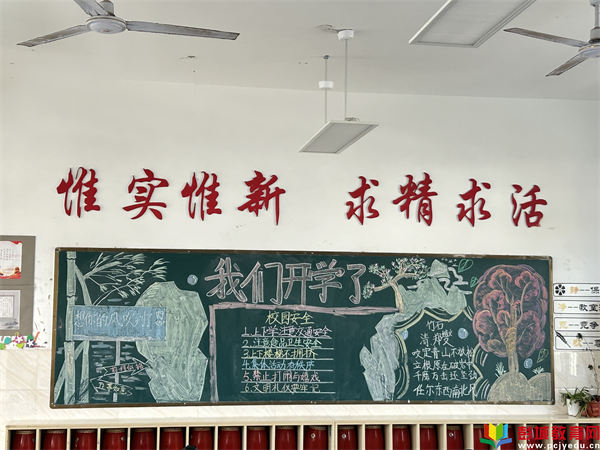 惟实惟新 求精求活
我们开学了
想你的风吹到了
校园安全
1.上下学注意交通安全
2.注意食品卫生安全
3.上下楼梯不拥挤
4.集体活动有秩序
5.禁止打闹与嬉戏
6.文明礼仪要牢记
竹石
清 郑燮
咬定青山不放松
立根原在破岩中
千磨万击还坚劲
任尔东西南北风
彭城教育网
www.pcjyedu.cn